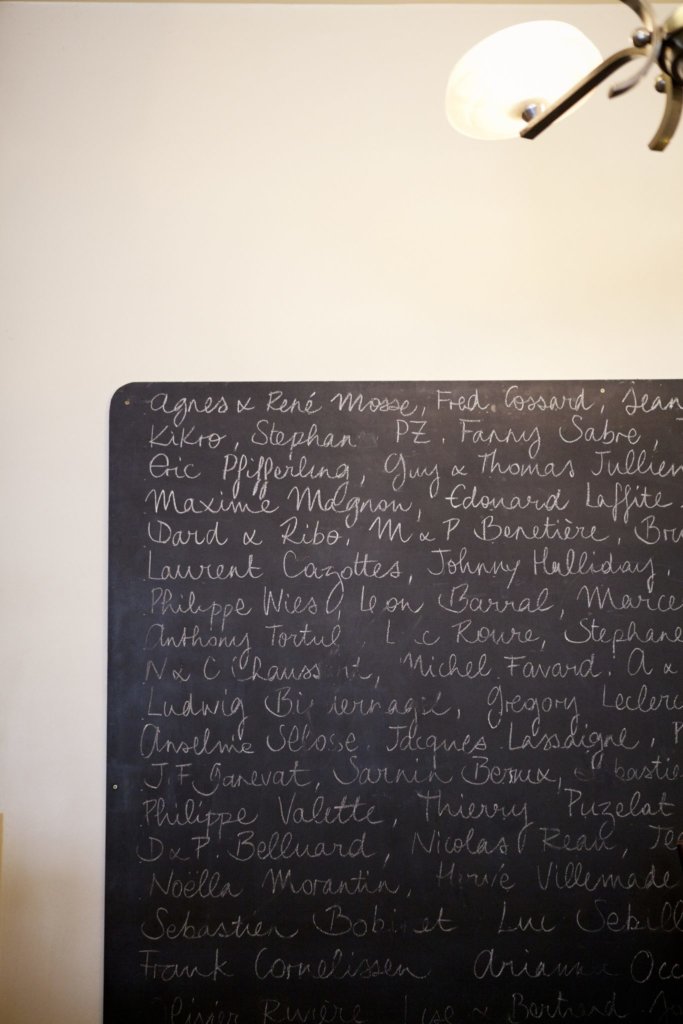 Agnes & René Mosse, Fred Cossard, Jean
KiKro, Stephan PZ. Fanny Sabre,
Eric Pfifferling, Guy & Thomas Jullien
Maxime Magnon, Edouard Laffite.
Dard & Ribo, M & P Benetière, Bru
Laurent Cazottes, Johnny Halliday,
Philippe Wies, Leon Barral, Marce
Anthony Tortul, L c Roure, Stephane
N & C Chauss nt, Michel Favard. A &
Ludwig Bi ernagel, Gregory Leclerc
Anselme Selosse. Jacques Lassaigne, P
J.F. Ganevat, Sarnin Berrux, bastie
Philippe Valette, Thierry Puzelat
D & P. Belluard, Nicolas Reau, Je
Noëlla Morantin, Hervé Villemade
Sebastien Bobinet Luc Sebill
Frank Cornelissen Arianna Occ
Olivier Rivière Lise & Bertrand Jo